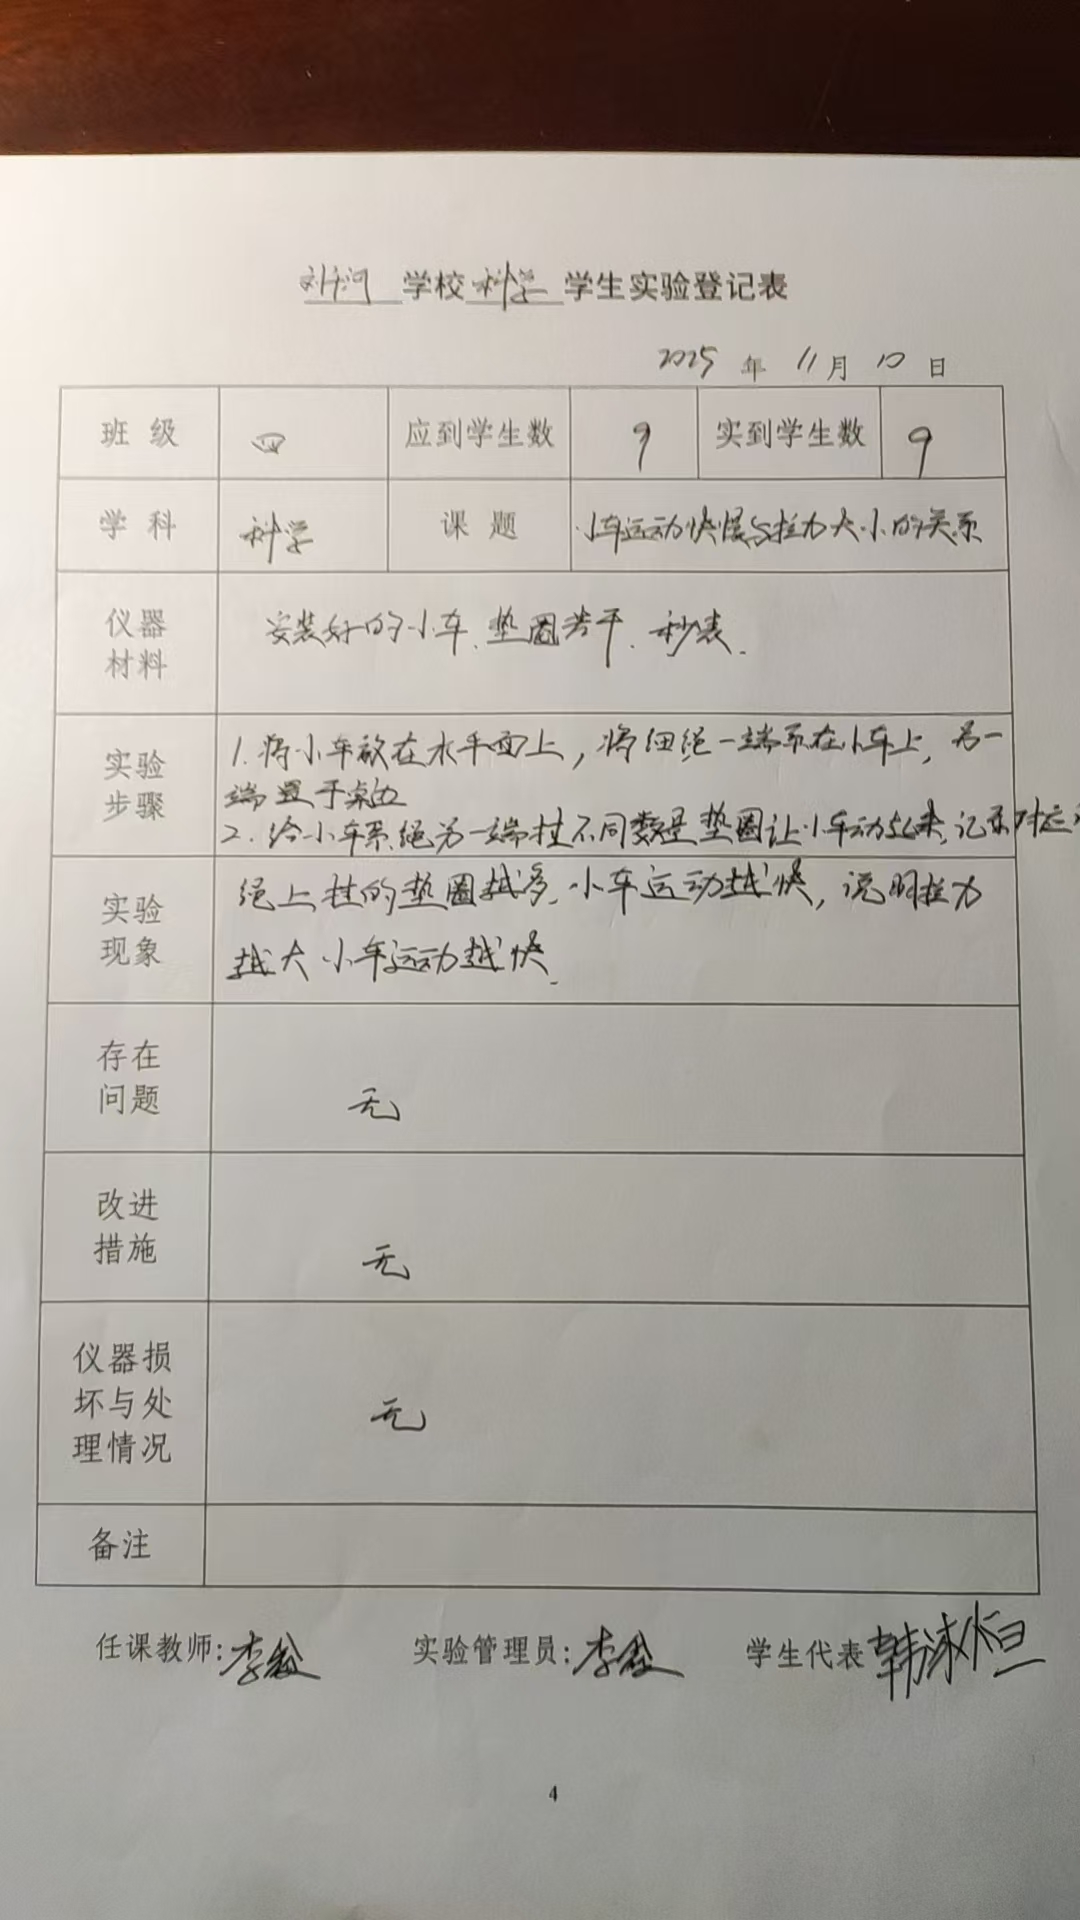 学校 科学 学生实验登记表
2025 年 11 月 10 日
班 级 四 应到学生数 9 实到学生数 9
学 科 科学 课 题 小车运动快慢与拉力大小的关系
仪器
材料
安装好的小车、垫圈若干、秒表.
实验
步骤
1. 将小车放在水平面上，将细绳一端系在小车上，另一
端置于桌边
2. 给小车系绳另一端挂不同数量垫圈让小车动起来，记录对应
实验
现象
绳上挂的垫圈越多，小车运动越快，说明拉力
越大小车运动越快.
存在
问题
无
改进
措施
无
仪器损
坏与处
理情况
无
备注
任课教师: 李 实验管理员: 李 学生代表 韩
4